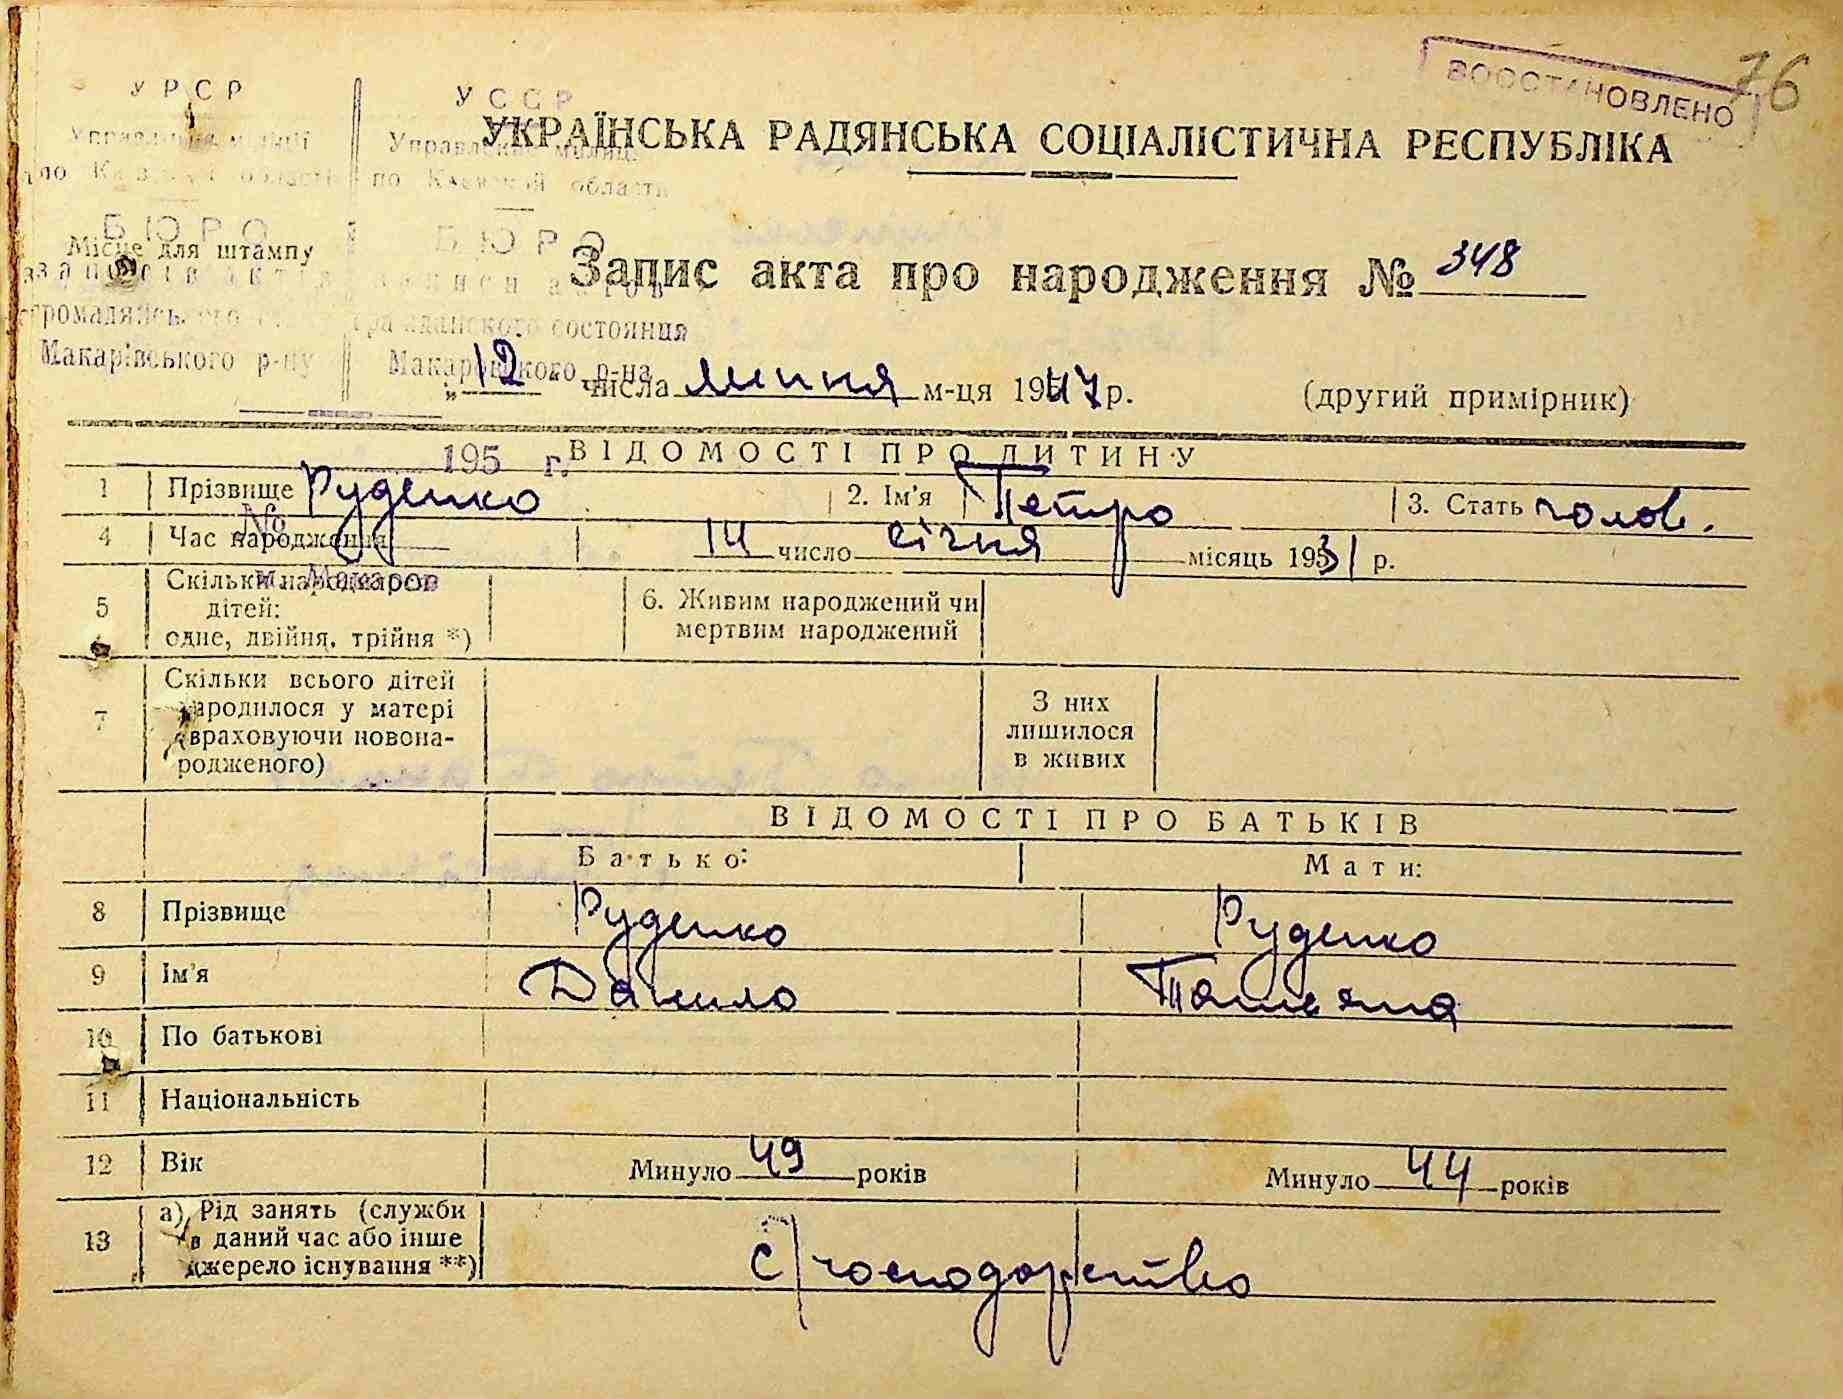 76
ВОССТАНОВЛЕНО
УРСР
УССР
Управління міліції
Управление милиц.
по Київській області
по Киевской области
УКРАЇНСЬКА РАДЯНСЬКА СОЦІАЛІСТИЧНА РЕСПУБЛІКА
БЮРО
БЮРО
Місце для штампу
записів актів
записи актов
Запис акта про народження № 348
громадянського
гражданского состояния
Макарівського р-ну
Макаровского р-на
„12" числа липня м-ця 1947 р.
(другий примірник)
195 г.
ВІДОМОСТІ ПРО ДИТИНУ
1 Прізвище Руденко 2. Ім'я Петро 3. Стать чолов.
№
4 Час народження 14 число січня місяць 1931 р.
м. Макаров
5 Скільки народилося дітей: одне, двійня, трійня *)
6. Живим народжений чи мертвим народжений
7 Скільки всього дітей народилося у матері (враховуючи новонародженого)
З них лишилося в живих
ВІДОМОСТІ ПРО БАТЬКІВ
Батько: Мати:
8 Прізвище Руденко Руденко
9 Ім'я Данило Татьяна
10 По батькові
11 Національність
12 Вік Минуло 49 років Минуло 44 років
13 а) Рід занять (служби в даний час або інше джерело існування **)
С/господарство